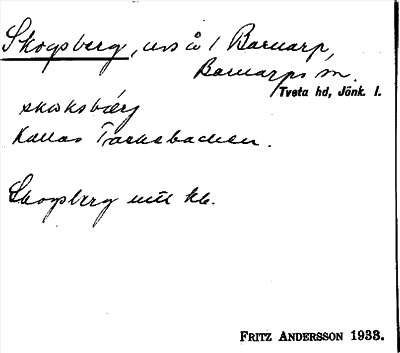 Skogsberg, urs å 1 Barnarp,
Barnarps sn.
Tveta hd, Jönk. l.
skoksbærj
Kallas Tacksbacken.
Skogsberg utt kb.
FRITZ ANDERSSON 1933.